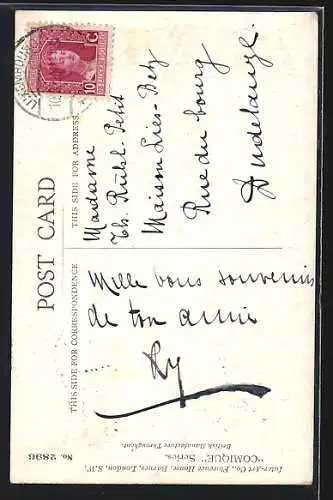 POST CARD
THIS SIDE FOR CORRESPONDENCE
THIS SIDE FOR ADDRESS
10 C
Mille bons souvenirs
de ton amie
Ly
Madame
Th. Ruhl-Petit
Maison Lies-Betz
Rue du bourg
Dudelange.
No. 2896
"COMIQUE" Series.
Inter-Art Co., Florence House, Barnes, London, S.W.
British Manufacture Throughout.